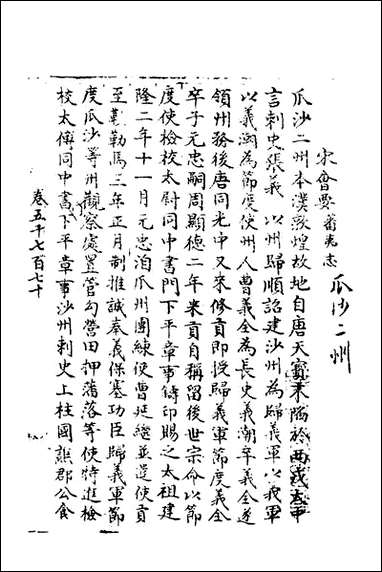 宋會要 蕃夷志 瓜沙二州
瓜沙二州本漢燉煌故地自唐天寶末陷於西戎大中
言刺史張義 以州歸順詔建沙州為歸義軍以義軍
以義潮為節度使州人曹義全為長史義潮卒義全遂
領州務後唐同光中又來修貢即授歸義軍節度義全
卒子元忠嗣周顯德二年來貢自稱留後世宗命以節
度使檢校太尉同中書門下平章事鑄印賜之太祖建
隆二年十一月元忠洎瓜州團練使曹延繼並遣使貢
至勒馬三年正月制推誠奉義保塞功臣歸義軍節
度瓜沙等州觀察處置管勾營田押蕃落等使特進檢
校太傅同中書下平章事沙州刺史上柱國譙郡公食
卷五千七百七十